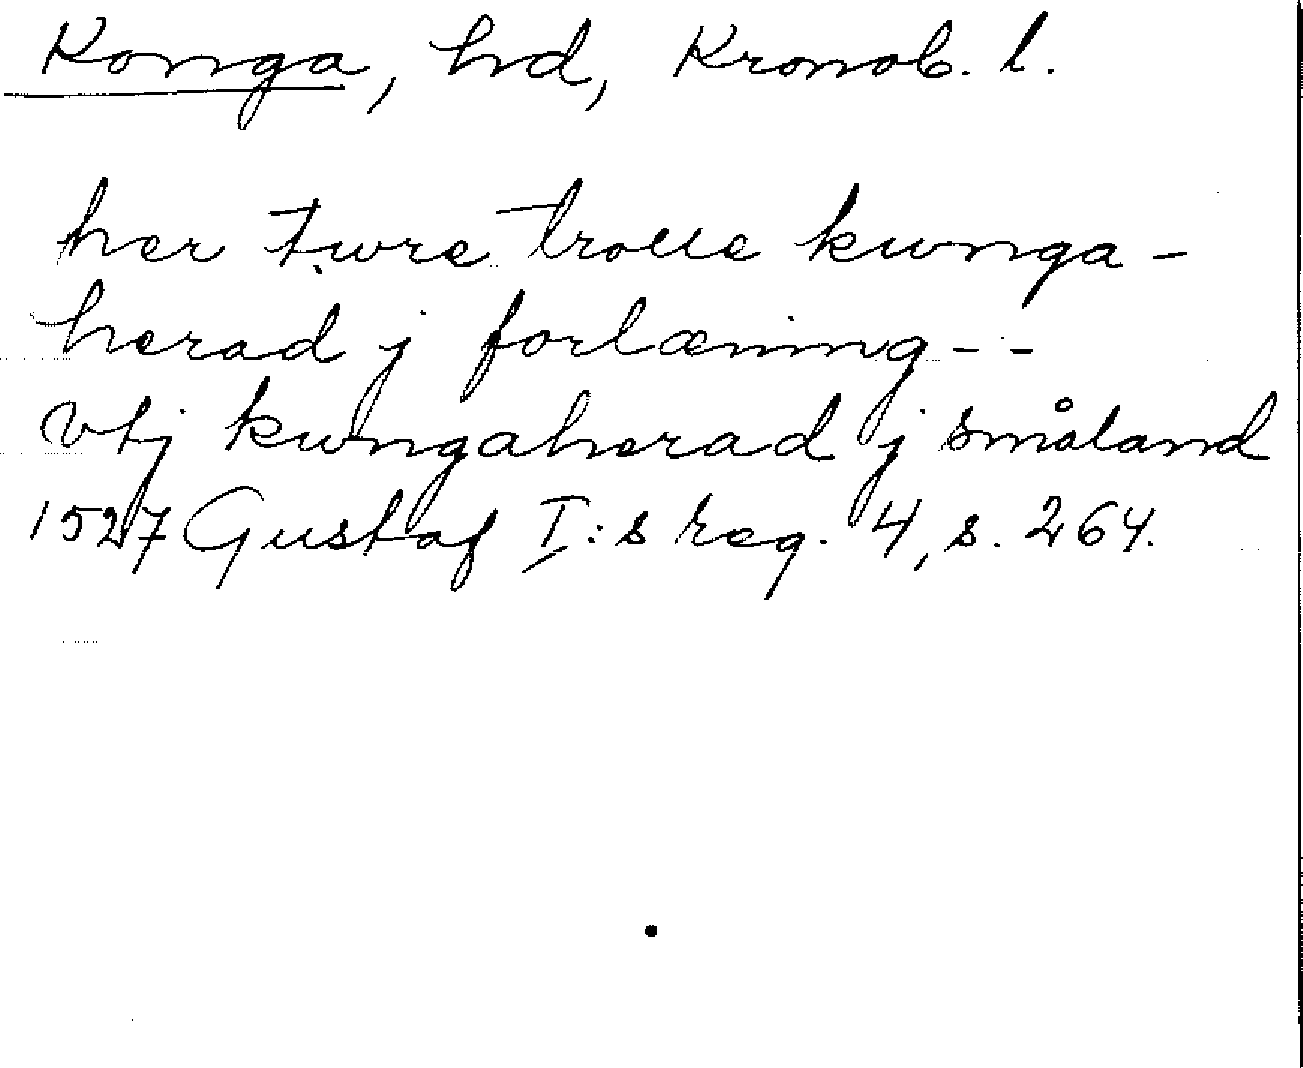 Konga, hd, Kronob. l.
her ture trolle kunga-
herad j forlæning - -
vtj kungaherad j småland
1527 Gustaf I:s reg. 4, s. 264.